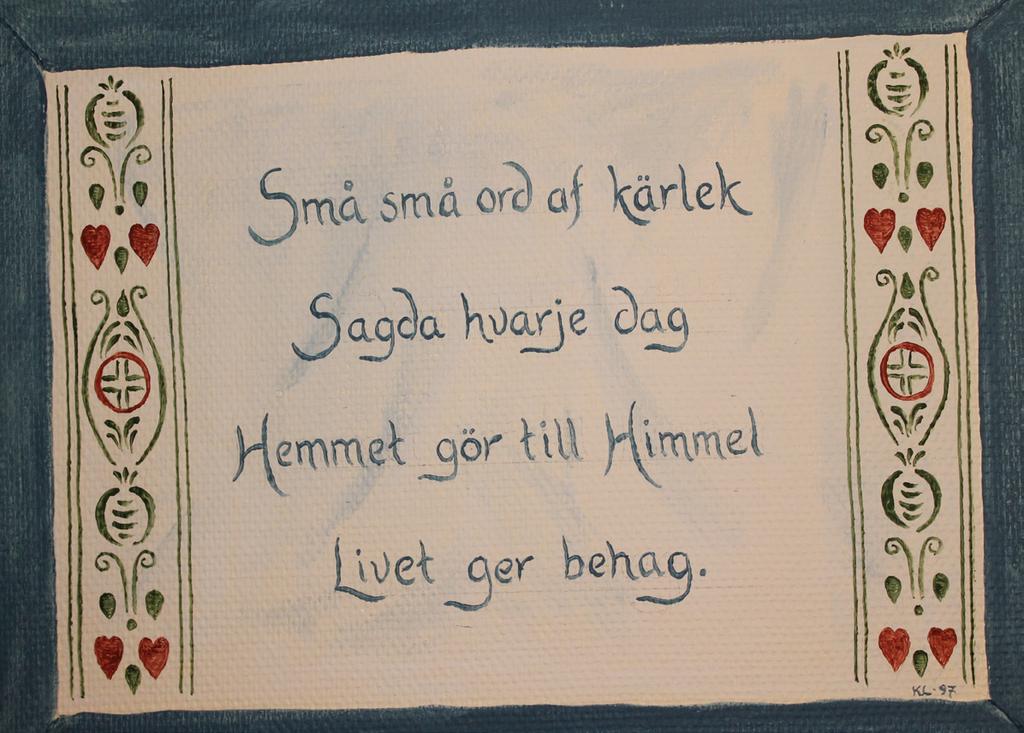 Små små ord af kärlek
Sagda hvarje dag
Hemmet gör till Himmel
Livet ger behag.
KL-97